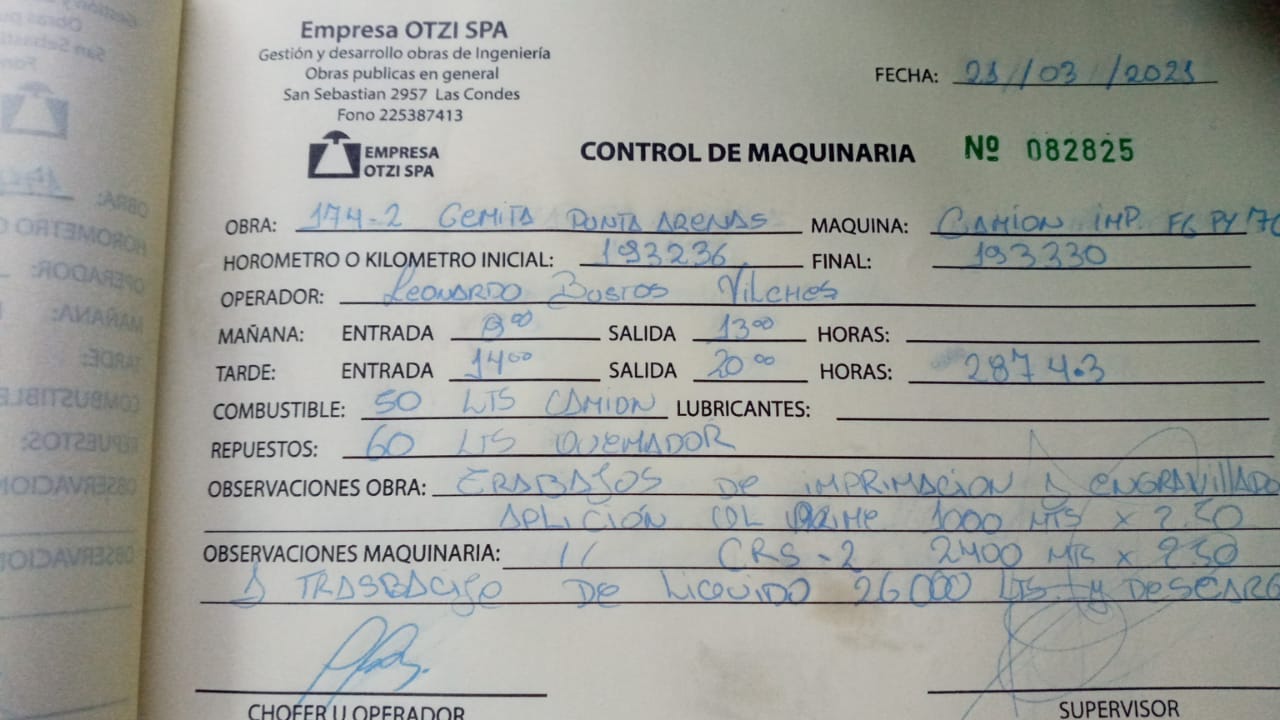 Empresa OTZI SPA
Gestión y desarrollo obras de Ingeniería
Obras publicas en general
San Sebastian 2957 Las Condes
Fono 225387413
FECHA: 21/03/2021
EMPRESA
OTZI SPA
CONTROL DE MAQUINARIA Nº 082825
OBRA: 174-2 GEMITA PUNTA ARENAS MAQUINA: CAMION IMP. FG PY 70
HOROMETRO O KILOMETRO INICIAL: 193236 FINAL: 193330
OPERADOR: LEONARDO BUSTOS VILCHES
MAÑANA: ENTRADA 8:00 SALIDA 13:00 HORAS:
TARDE: ENTRADA 14:00 SALIDA 20:00 HORAS: 2874.3
COMBUSTIBLE: 50 LTS CAMION LUBRICANTES:
REPUESTOS: 60 LTS QUEMADOR
OBSERVACIONES OBRA: TRABAJOS DE IMPRIMACION Y ENGRAVILLADO
APLICIÓN COL PRIME 1000 MTS X 2.50
OBSERVACIONES MAQUINARIA: // CRS-2 2400 MTS X 2.50
TRASBACIJE DE LIQUIDO 26000 LTS Y DESCARG
CHOFER U OPERADOR SUPERVISOR